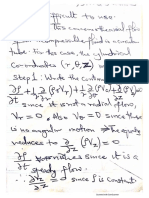 difficult to use.
incompressible fluid in a circular
tube. For this case, the cylindrical
Co-ordinates (r, θ, z)
Step 1: Write the Continuity
∂ρ/∂t + 1/r ∂/∂r (ρ r Vr) + 1/r ∂/∂θ
since it is not a radial flow,
Vr = 0. Also Vθ = 0 since there
is no angular motion → the equation
reduces to ∂/∂z (ρVz) = 0
∂ρ/∂t vanishes since it is a
steady flow.
∴ ∂Vz/∂z = 0 ρ is constant